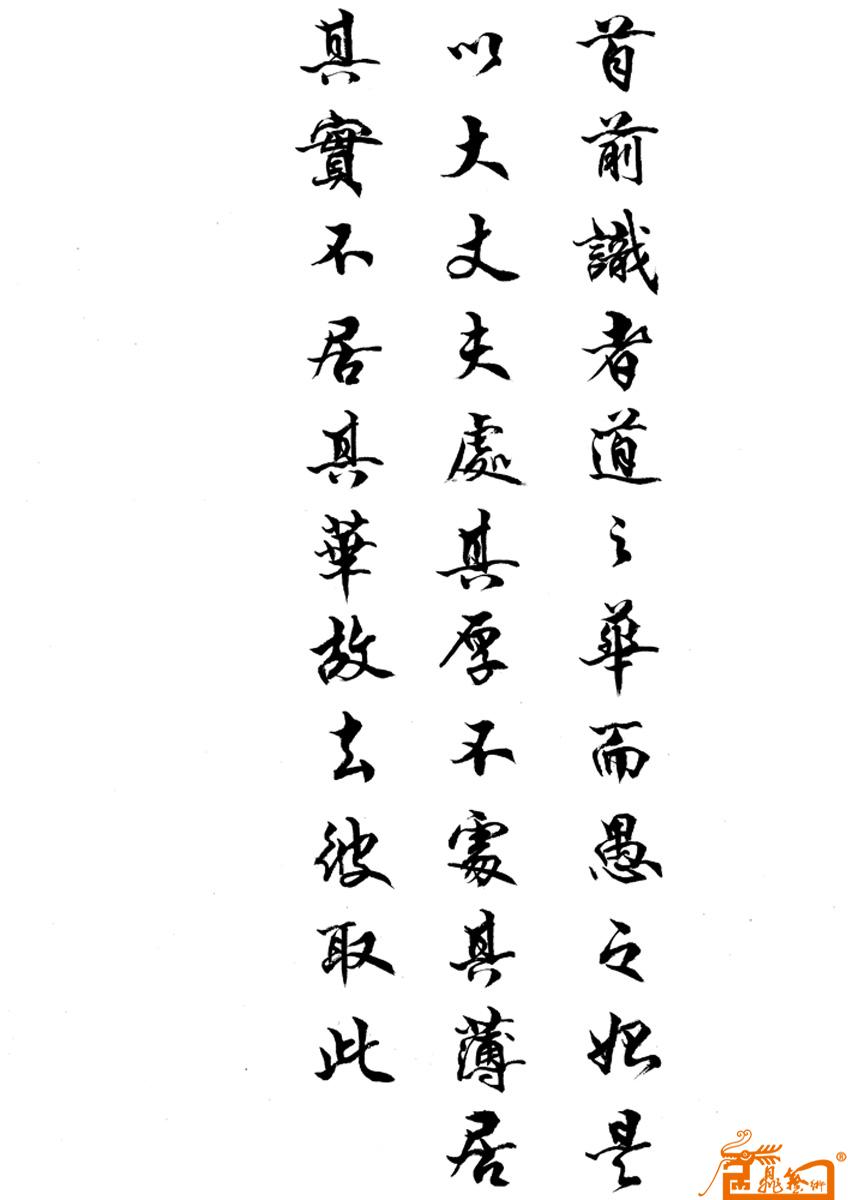 首前識者道之華而愚之始是
以大丈夫處其厚不處其薄居
其實不居其華故去彼取此